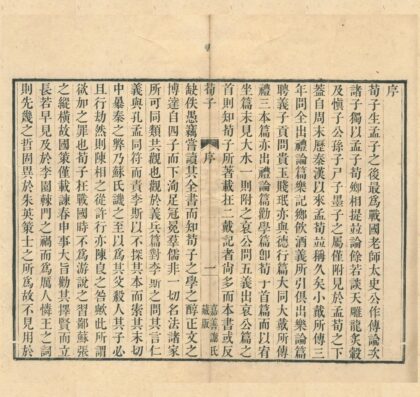 序
荀子生孟子之後最爲戰國老師太史公作傳論次
諸子獨以孟子荀卿相提竝論餘若談天雕龍炙轂
及愼子公孫子尸子墨子之屬僅附見於孟荀之下
蓋自周末歷秦漢以來孟荀竝稱久矣小戴所傳三
年問全出禮論篇樂記鄉飲酒義所引俱出樂論篇
聘義子貢問貴玉賤珉亦與德行篇大同大戴所傳
禮三本篇亦出禮論篇勸學篇卽荀子首篇而以宥
坐篇末見大水一則附之哀公問五義出哀公篇之
首則知荀子所著載在二戴記者尚多而本書或反
荀子
序
一
嘉善謝氏
藏版
缺佚愚竊嘗讀其全書而知荀子之學之醇正文之
博達自四子而下洵足冠冕羣儒非一切名法諸家
所可同類共觀也觀於議兵篇對李斯之問其言仁
義與孔孟同符而責李斯以不探其本而索其末切
中暴秦之弊乃蘇氏譏之至以爲其父殺人其子必
且行劫然則陳相之從許行亦陳良之咎歟此所謂
欲加之罪也荀子在戰國時不爲游說之習鄙蘇張
之縱橫故國策僅載諫春申事大旨勸其擇賢而立
長若早見及於李園棘門之禍而爲厲人憐王之詞
則先幾之哲固異於朱英策士之所爲故不見用於